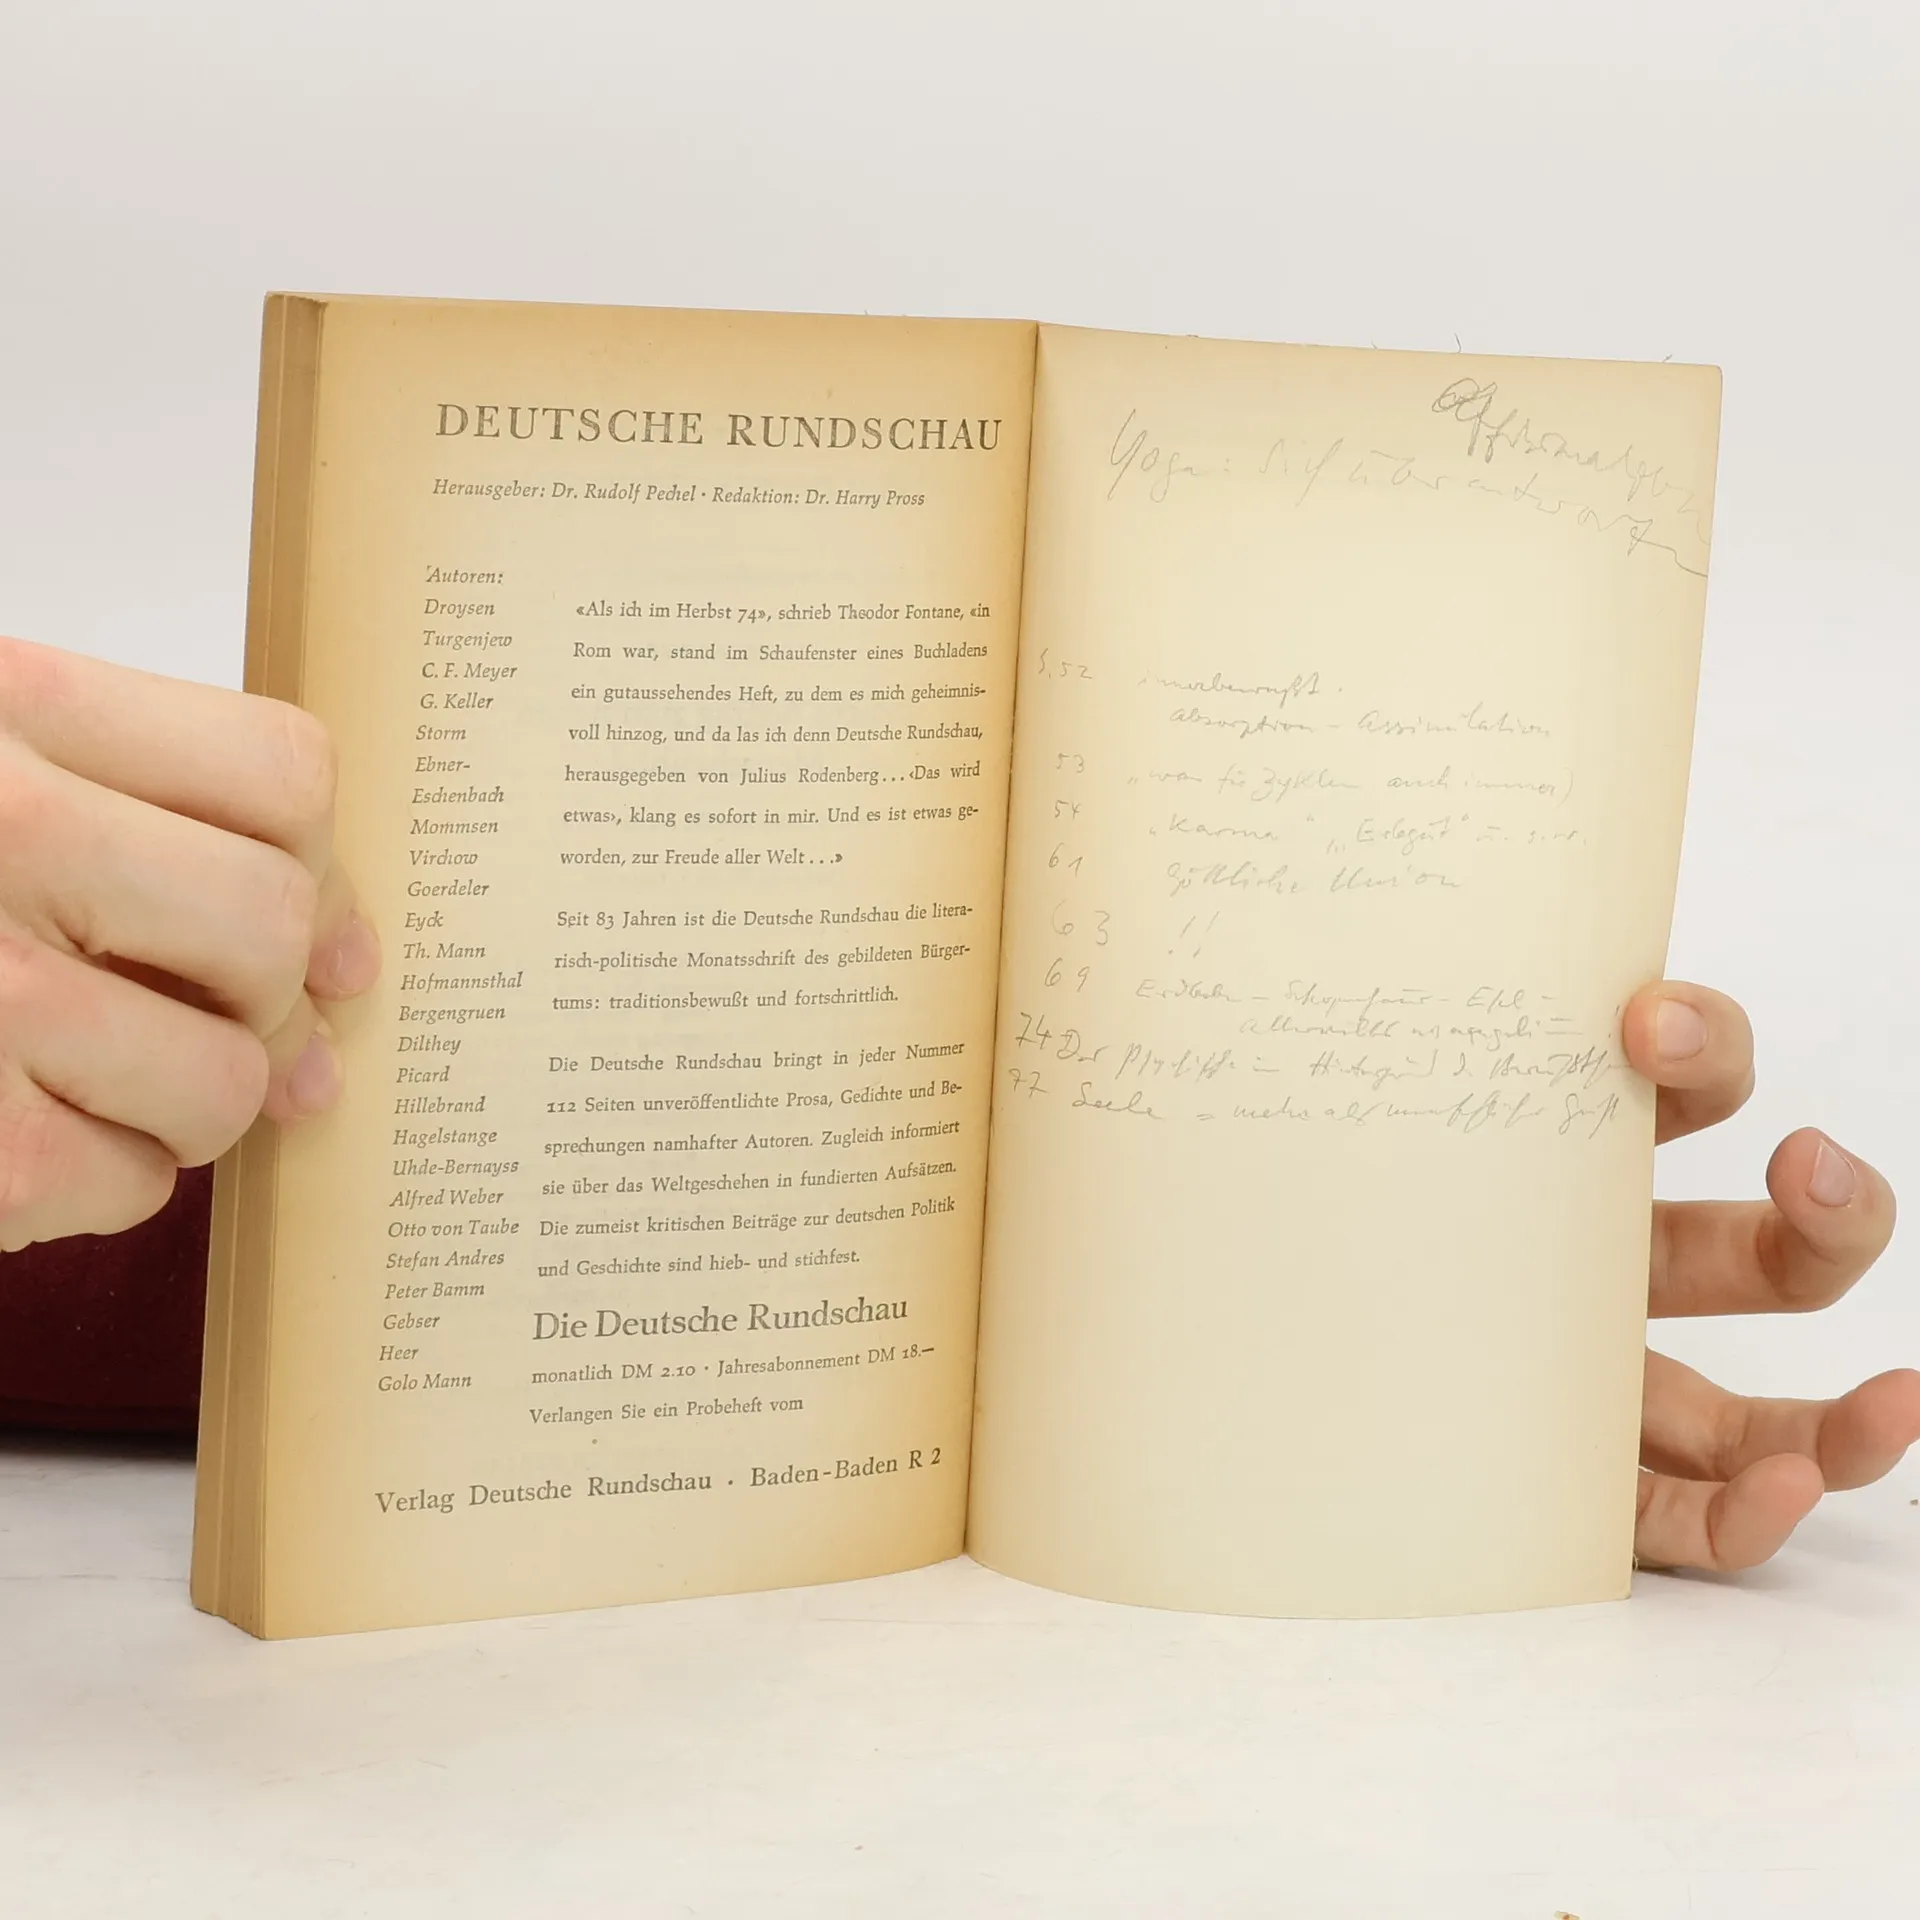 DEUTSCHE RUNDSCHAU
Herausgeber: Dr. Rudolf Pechel · Redaktion: Dr. Harry Pross
Autoren:
Droysen
Turgenjew
C. F. Meyer
G. Keller
Storm
Ebner-
Eschenbach
Mommsen
Virchow
Goerdeler
Eyck
Th. Mann
Hofmannsthal
Bergengruen
Dilthey
Picard
Hillebrand
Hagelstange
Uhde-Bernayss
Alfred Weber
Otto von Taube
Stefan Andres
Peter Bamm
Gebser
Heer
Golo Mann
«Als ich im Herbst 74», schrieb Theodor Fontane, «in
Rom war, stand im Schaufenster eines Buchladens
ein gutaussehendes Heft, zu dem es mich geheimnis-
voll hinzog, und da las ich denn Deutsche Rundschau,
herausgegeben von Julius Rodenberg...‹Das wird
etwas›, klang es sofort in mir. Und es ist etwas ge-
worden, zur Freude aller Welt...»
Seit 83 Jahren ist die Deutsche Rundschau die litera-
risch-politische Monatsschrift des gebildeten Bürger-
tums: traditionsbewußt und fortschrittlich.
Die Deutsche Rundschau bringt in jeder Nummer
112 Seiten unveröffentlichte Prosa, Gedichte und Be-
sprechungen namhafter Autoren. Zugleich informiert
sie über das Weltgeschehen in fundierten Aufsätzen.
Die zumeist kritischen Beiträge zur deutschen Politik
und Geschichte sind hieb- und stichfest.
Die Deutsche Rundschau
monatlich DM 2.10 · Jahresabonnement DM 18.—
Verlangen Sie ein Probeheft vom
Verlag Deutsche Rundschau · Baden-Baden R 2
Yoga: sich überantwort
S. 52
absorption - Assimilation
53 „was für Zyklen auch immer)
54 „Karma" „Erbgut" u. s. w.
61 göttliche Union
63 !!
69
74 Der im Hintergrund
77 Seele = mehr als